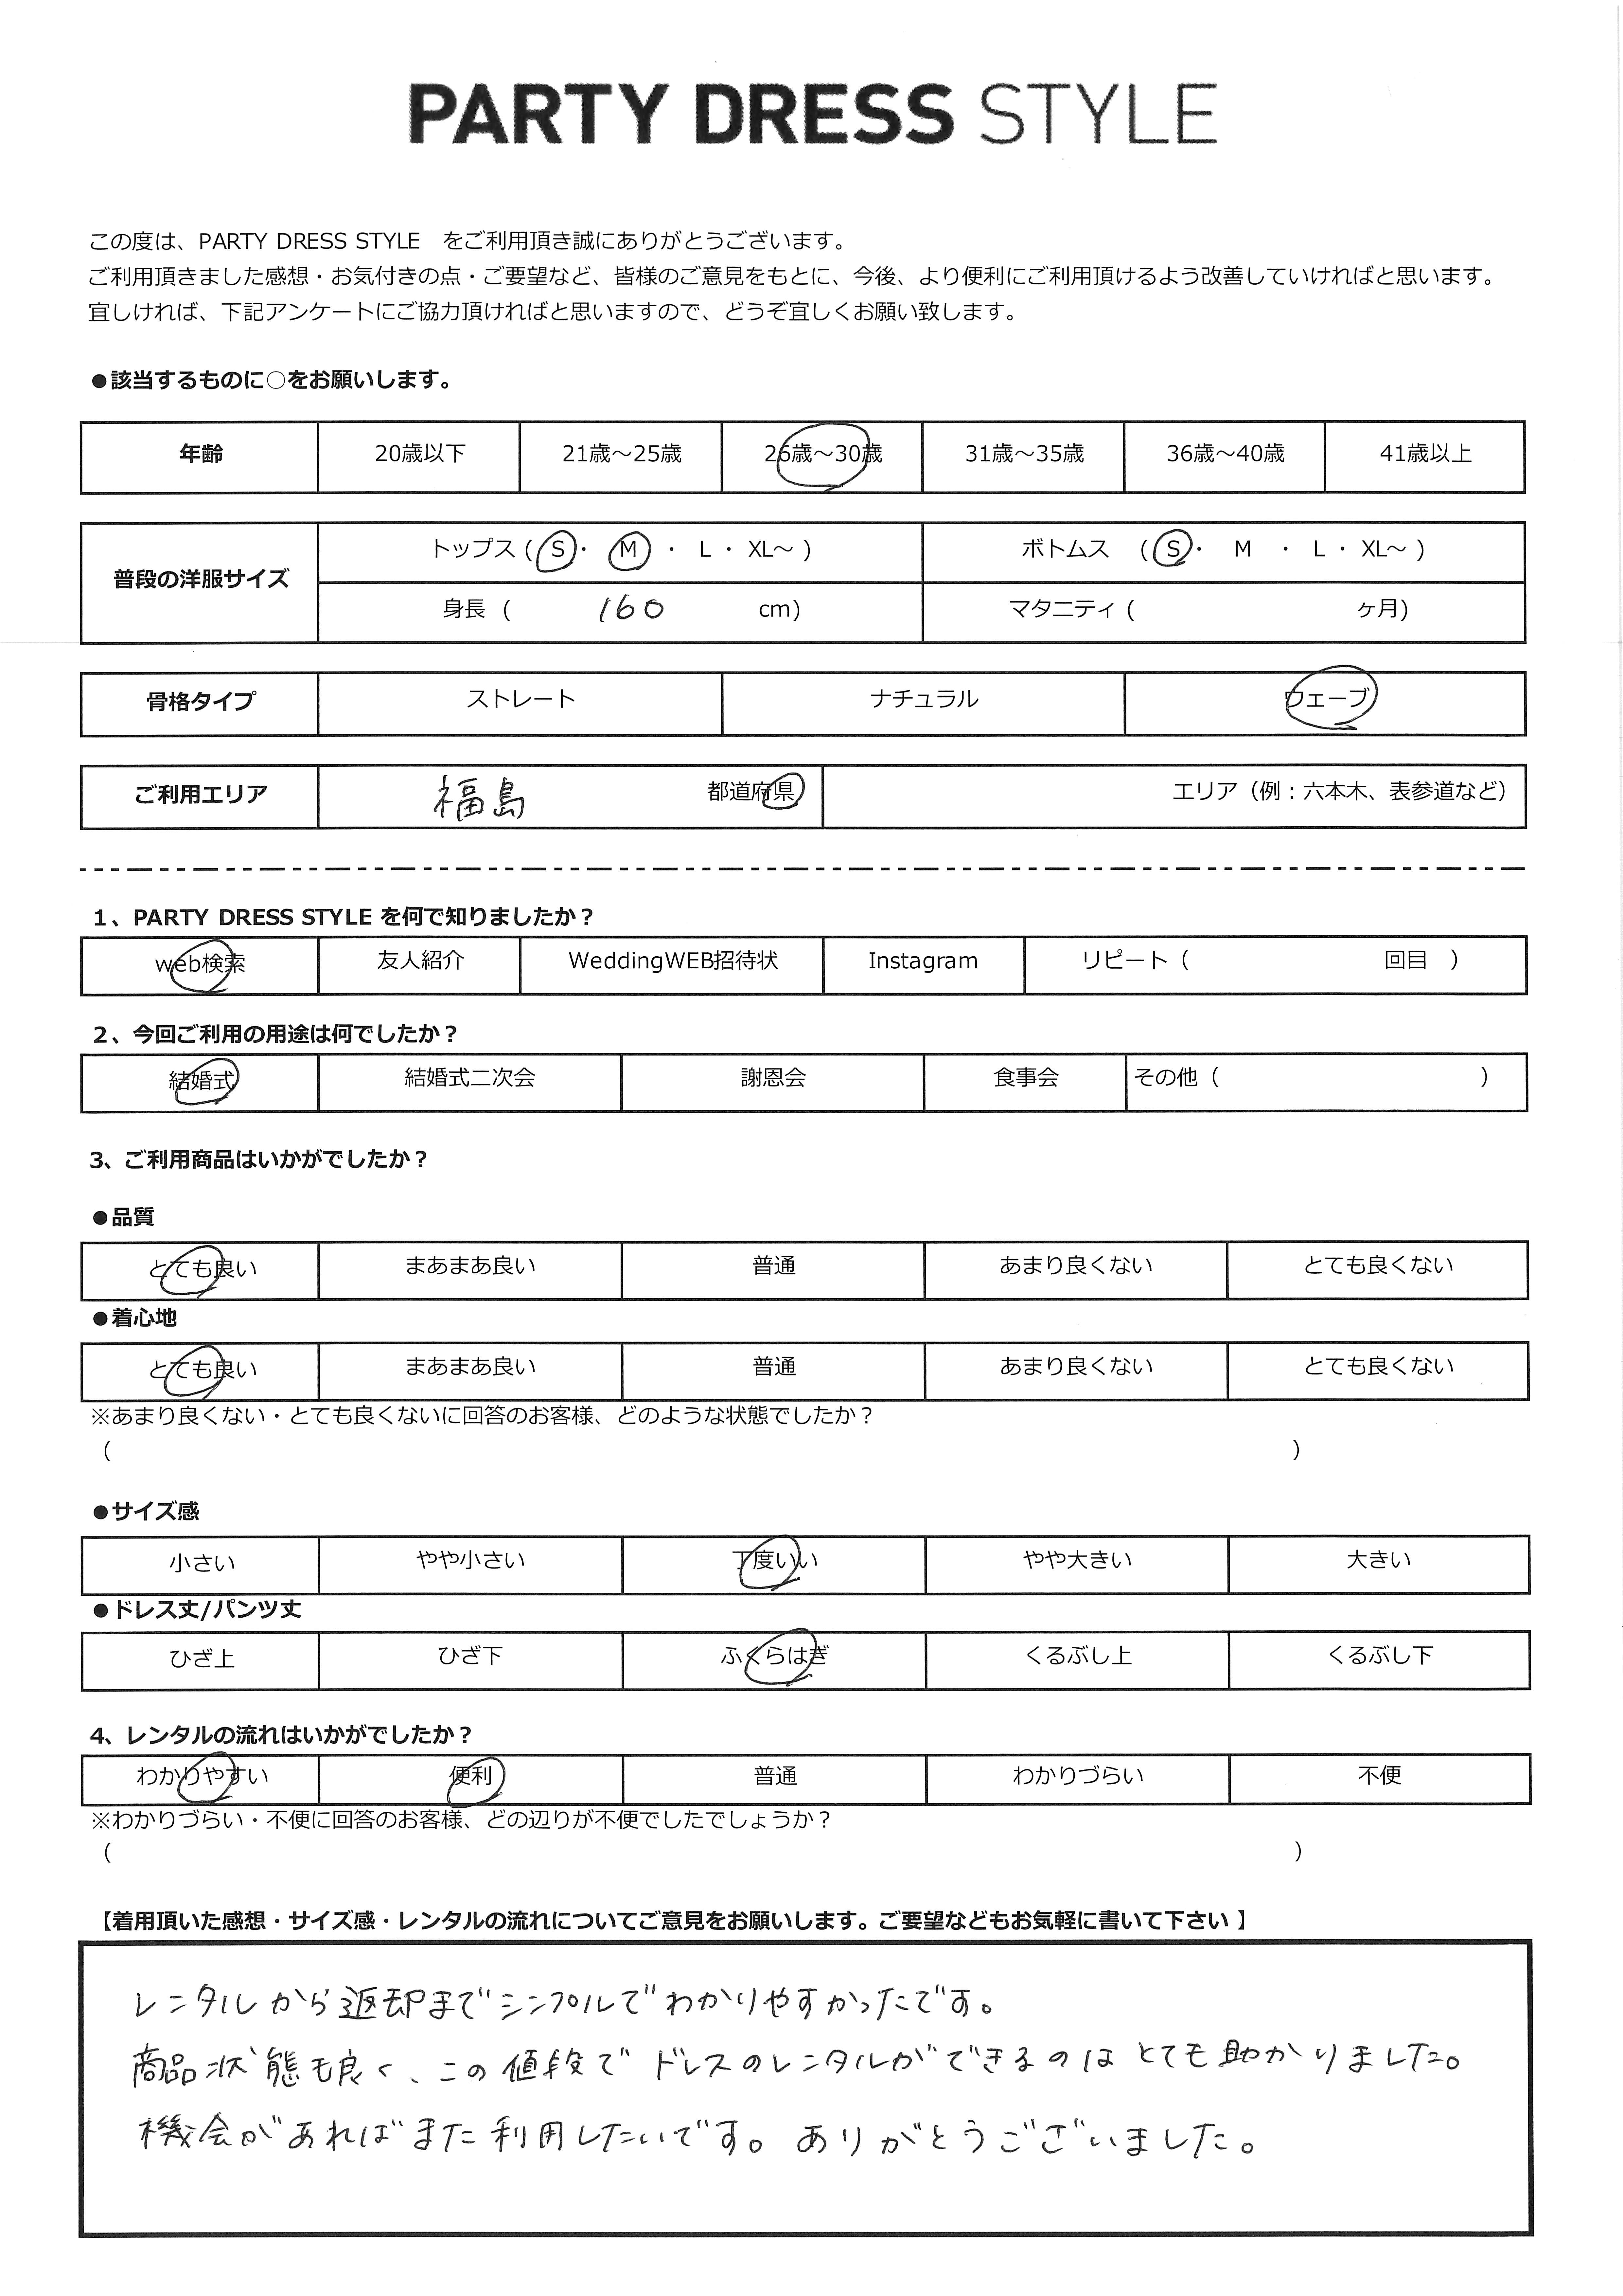 PARTY DRESS STYLE
この度は、PARTY DRESS STYLE　をご利用頂き誠にありがとうございます。
ご利用頂きました感想・お気付きの点・ご要望など、皆様のご意見をもとに、今後、より便利にご利用頂けるよう改善していければと思います。
宜しければ、下記アンケートにご協力頂ければと思いますので、どうぞ宜しくお願い致します。
●該当するものに○をお願いします。
年齢 20歳以下 21歳～25歳 26歳～30歳 31歳～35歳 36歳～40歳 41歳以上
普段の洋服サイズ トップス ( S ・ M ・ L ・ XL～ ) ボトムス ( S ・ M ・ L ・ XL～ )
身長 ( 160 cm) マタニティ ( ヶ月)
骨格タイプ ストレート ナチュラル ウェーブ
ご利用エリア 福島 都道府県 エリア（例：六本木、表参道など）
1、PARTY DRESS STYLE を何で知りましたか？
web検索 友人紹介 WeddingWEB招待状 Instagram リピート（ 回目 ）
2、今回ご利用の用途は何でしたか？
結婚式 結婚式二次会 謝恩会 食事会 その他（ ）
3、ご利用商品はいかがでしたか？
●品質
とても良い まあまあ良い 普通 あまり良くない とても良くない
●着心地
とても良い まあまあ良い 普通 あまり良くない とても良くない
※あまり良くない・とても良くないに回答のお客様、どのような状態でしたか？
（ ）
●サイズ感
小さい やや小さい 丁度いい やや大きい 大きい
●ドレス丈/パンツ丈
ひざ上 ひざ下 ふくらはぎ くるぶし上 くるぶし下
4、レンタルの流れはいかがでしたか？
わかりやすい 便利 普通 わかりづらい 不便
※わかりづらい・不便に回答のお客様、どの辺りが不便でしたでしょうか？
（ ）
【着用頂いた感想・サイズ感・レンタルの流れについてご意見をお願いします。ご要望などもお気軽に書いて下さい 】
レンタルから返却までシンプルでわかりやすかったです。
商品状態も良く、この値段でドレスのレンタルができるのはとても助かりました。
機会があればまた利用したいです。ありがとうございました。